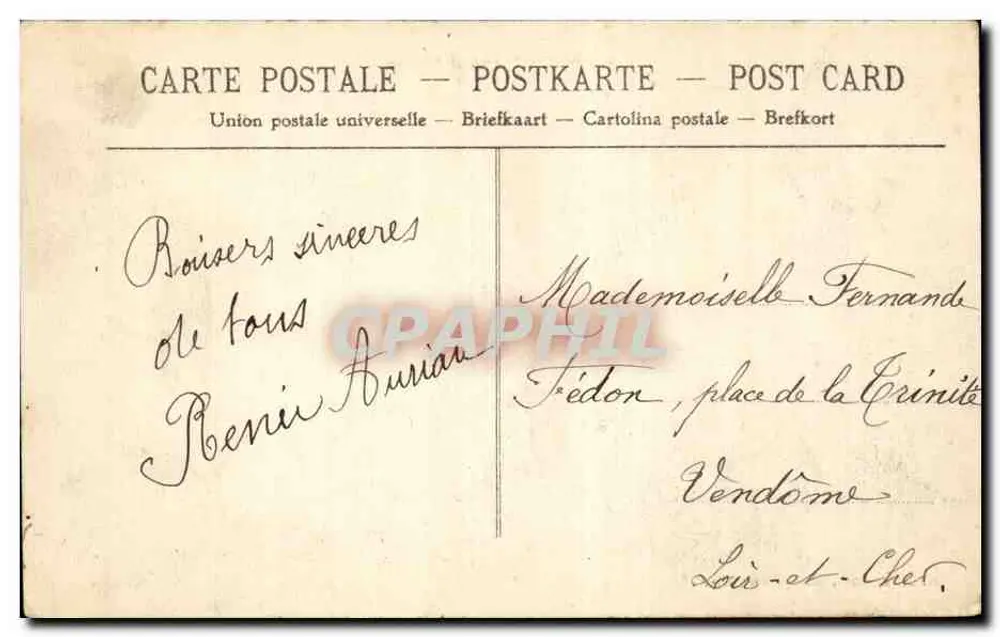 CARTE POSTALE — POSTKARTE — POST CARD
Union postale universelle — Briefkaart — Cartolina postale — Brefkort
Baisers sinceres
de tous
Renée
Mademoiselle Fernande
Fédon, place de la Trinité
Vendôme
Loir-et-Cher.
CPAPHIL